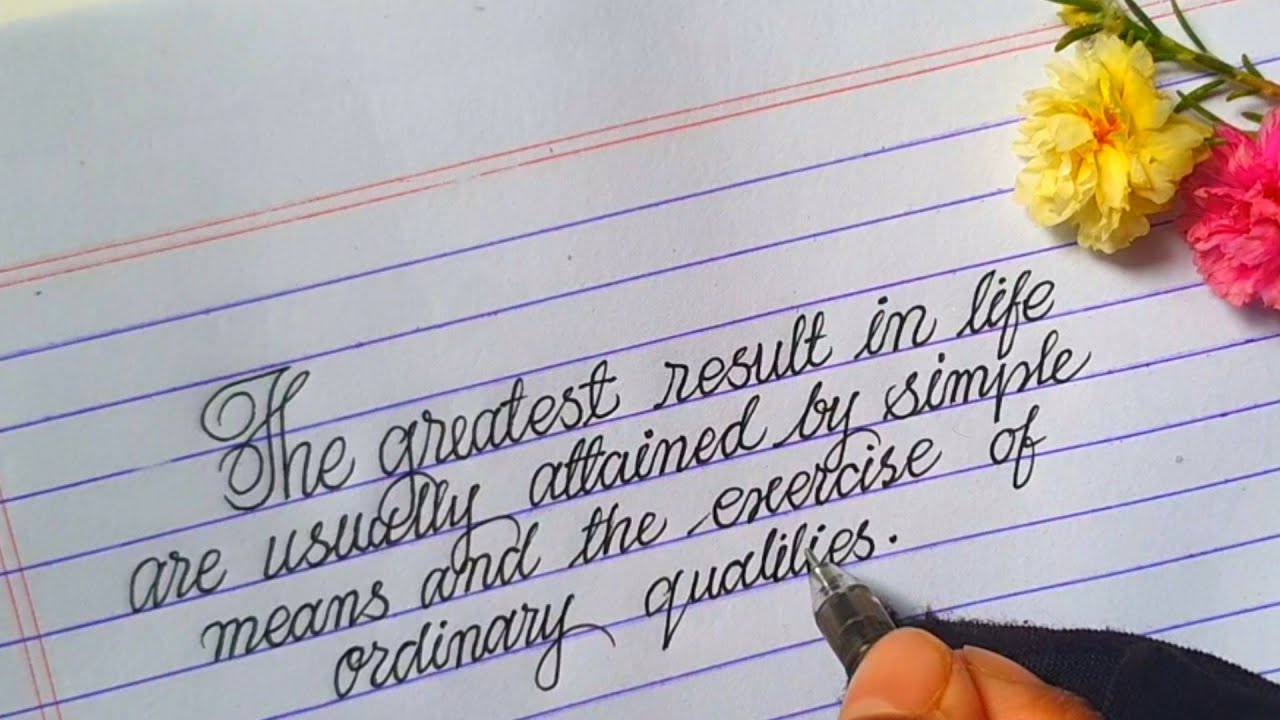 The greatest result in life
are usually attained by simple
means and the exercise of
ordinary qualities.